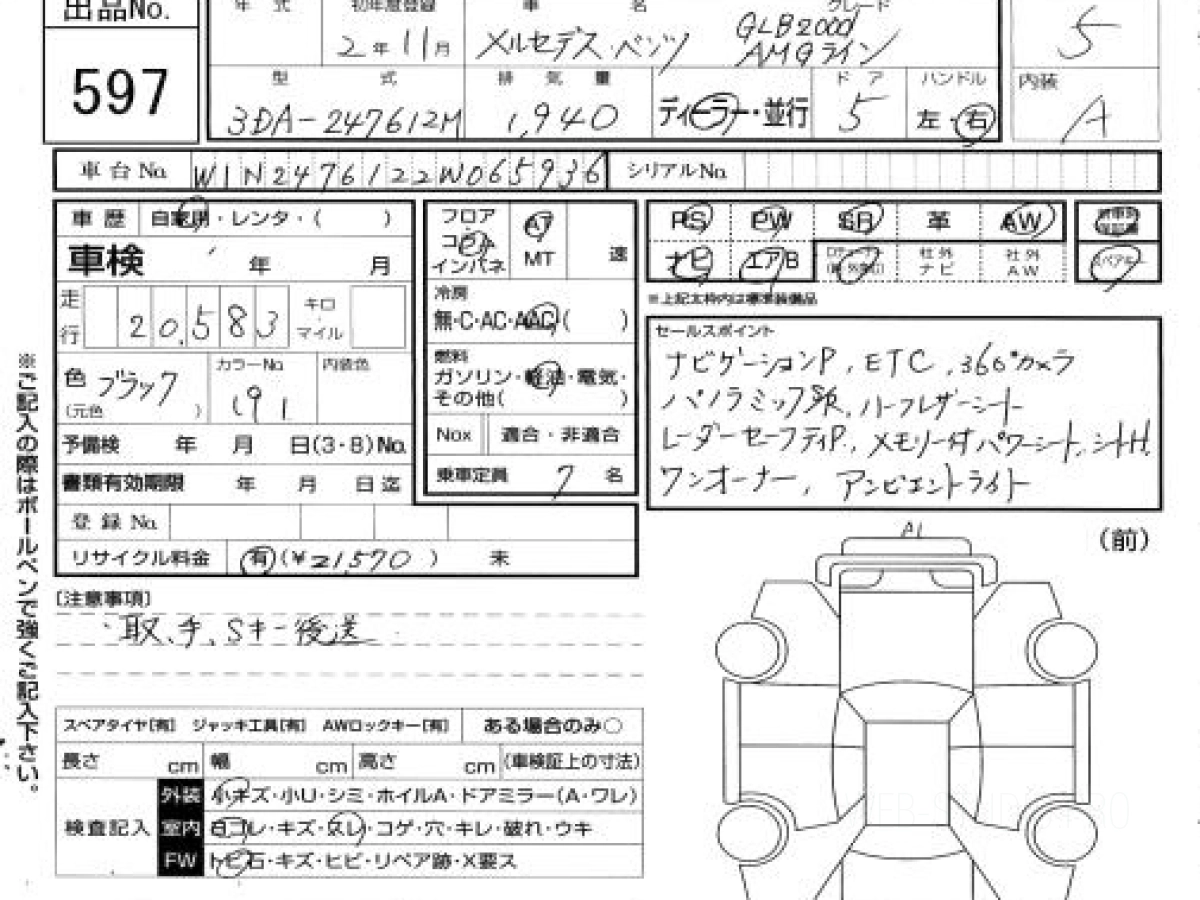 出品No.
597
年 式
初年度登録
車 名
グレード
2年11月
メルセデス・ベンツ
GLB200d
AMGライン
5
型 式
排 気 量
ド ア
ハンドル
内装
3DA-247612M
1,940
ディーラー・並行
5
左・右
A
車台No.
W1N2476122W065936
シリアルNo.
車 歴
自家用・レンタ・( )
フロア
コラム
インパネ
AT
MT
速
PS
PW
SR
革
AW
ナビ
エアB
社外ナビ
社外AW
スペアキー
車検
年 月
※上記太枠内は標準装備品
走行
20,583
キロ
マイル
冷房
無・C・AC・AAC( )
セールスポイント
ナビゲーションP, ETC, 360°カメラ
パノラミックSR, ハーフレザーシート
レーダーセーフティP, メモリー付パワーシート, シートH
ワンオーナー, アンビエントライト
色
ブラック
(元色 )
カラーNo.
191
内装色
燃料
ガソリン・軽油・電気・
その他( )
Nox
適合・非適合
予備検 年 月 日(3・8)No.
書類有効期限 年 月 日迄
乗車定員 7 名
登録No.
リサイクル料金
有(¥21,570 ) 未
[注意事項]
取、手、Sキー後送
A1
(前)
※ご記入の際はボールペンで強くご記入下さい。
スペアタイヤ[有] ジャッキ工具[有] AWロックキー[有]
ある場合のみ○
長さ cm 幅 cm 高さ cm (車検証上の寸法)
検査記入
外装 小キズ・小U・シミ・ホイルA・ドアミラー(A・ワレ)
室内 ヨゴレ・キズ・スレ・コゲ・穴・キレ・破れ・ウキ
FW トビ石・キズ・ヒビ・リペア跡・X要ス